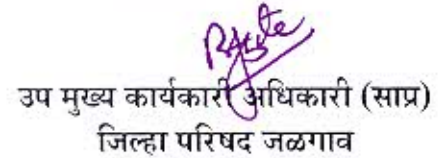 उप मुख्य कार्यकारी अधिकारी (साप्र)
जिल्हा परिषद जळगाव